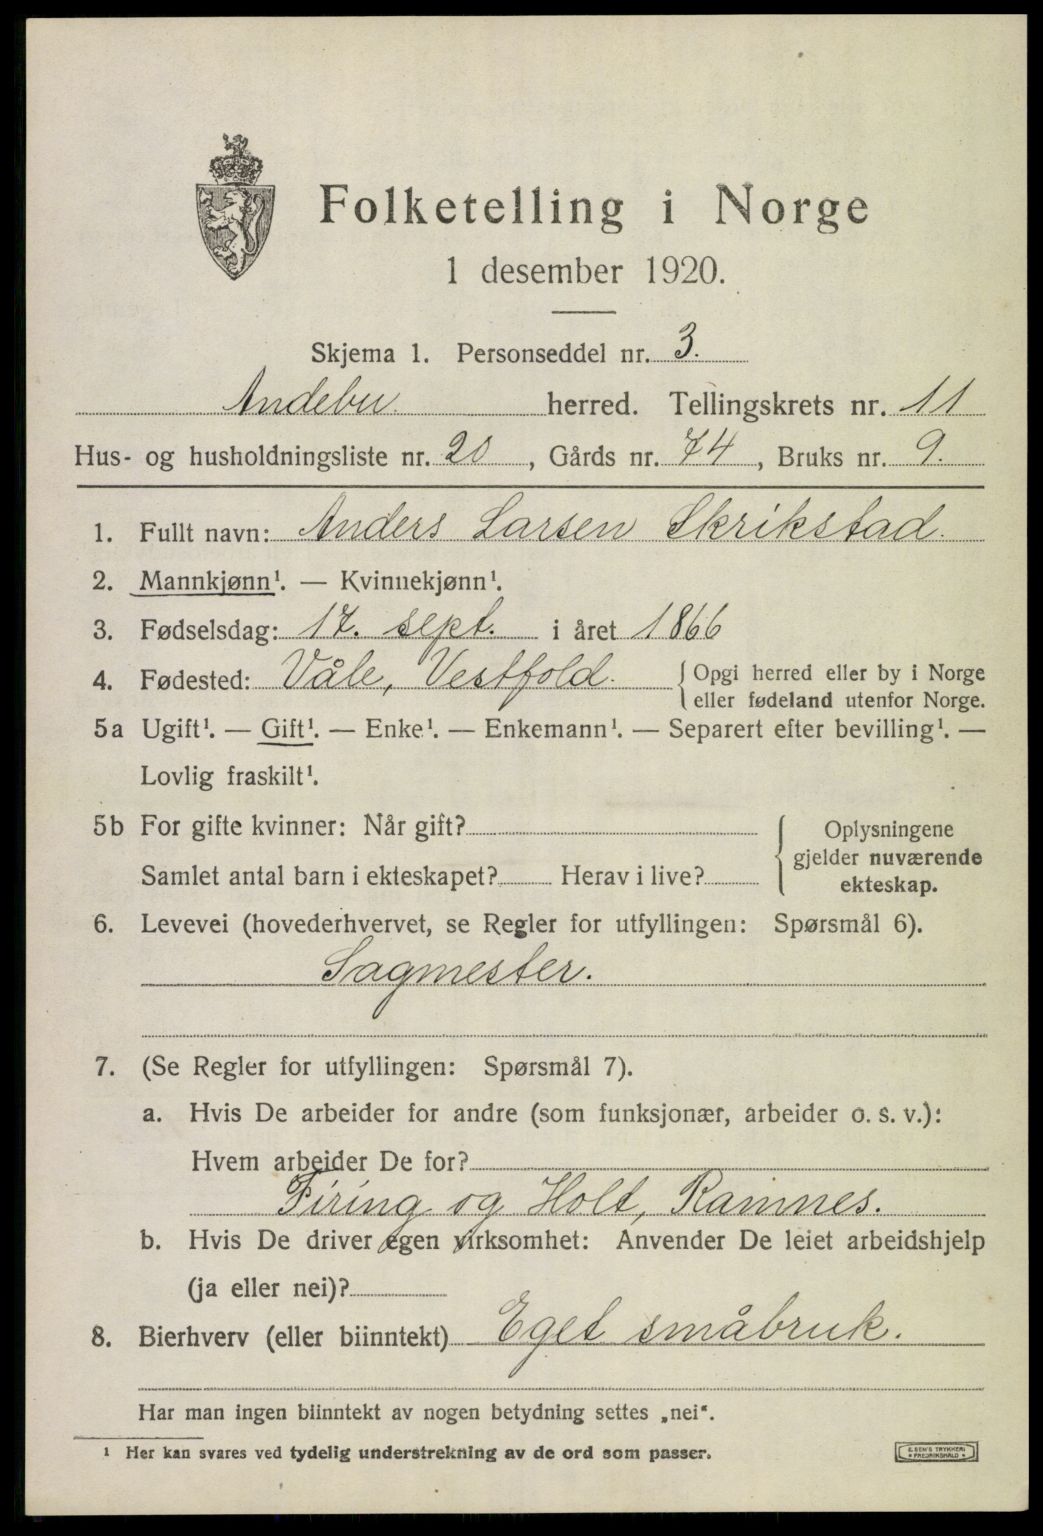 Folketelling i Norge
1 desember 1920.
Skjema 1. Personseddel nr. 3.
Andebu. herred. Tellingskrets nr. 11
Hus- og husholdningsliste nr. 20, Gårds nr. 74, Bruks nr. 9.
1. Fullt navn: Anders Larsen Skrikstad.
2. Mannkjønn¹. — Kvinnekjønn¹.
3. Fødselsdag: 17. sept. i året 1866
4. Fødested: Våle, Vestfold. { Opgi herred eller by i Norge
eller fødeland utenfor Norge.
5a Ugift¹. — Gift¹. — Enke¹. — Enkemann¹. — Separert efter bevilling¹. —
Lovlig fraskilt¹.
5b For gifte kvinner: Når gift? { Oplysningene
gjelder nuværende
Samlet antal barn i ekteskapet? Herav i live?
ekteskap.
6. Levevei (hovederhvervet, se Regler for utfyllingen: Spørsmål 6).
Sagmester.
7. (Se Regler for utfyllingen: Spørsmål 7).
a. Hvis De arbeider for andre (som funksjonær, arbeider o. s. v.):
Hvem arbeider De for?
Firing og Holt, Ramnes.
b. Hvis De driver egen virksomhet: Anvender De leiet arbeidshjelp
(ja eller nei)?
8. Bierhverv (eller biinntekt) Eget småbruk.
Har man ingen biinntekt av nogen betydning settes „nei".
¹ Her kan svares ved tydelig understrekning av de ord som passer.
E. SEM'S TRYKKERI
FREDRIKSHALD